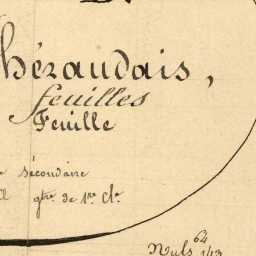 héraudais,
feuilles
Feuille
secondaire
gtre. de 1re. cle.
64
Nuls 143